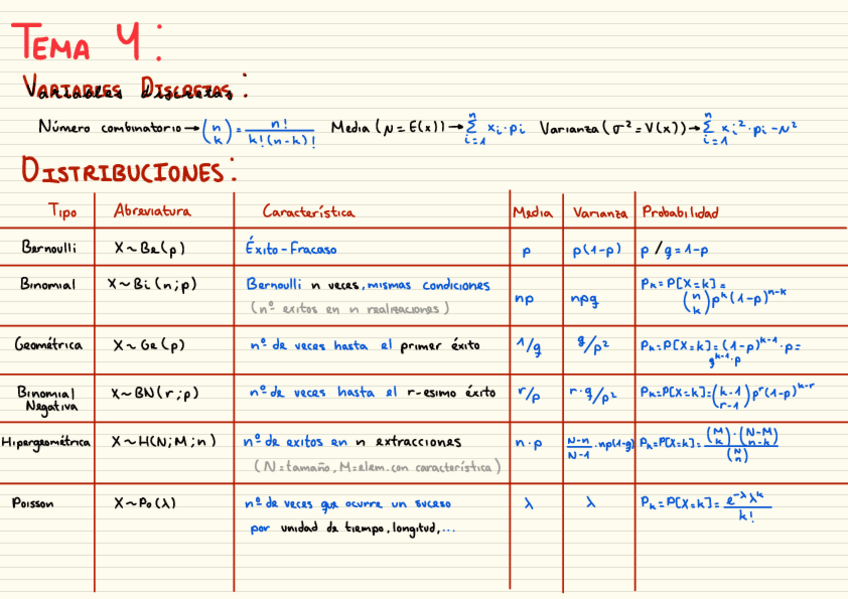 TEMA 4:
VARIABLES DISCRETAS:
Número combinatorio → (n k) = n! / k!(n-k)! Media (μ = E(x)) → Σ i=1 n xi·pi Varianza (σ² = V(x)) → Σ i=1 n xi²·pi - μ²
DISTRIBUCIONES:
Tipo Abreviatura Característica Media Varianza Probabilidad
Bernoulli X~Be(p) Éxito-Fracaso p p(1-p) p / q=1-p
Binomial X~Bi(n;p) Bernoulli n veces, mismas condiciones np npq Pk=P[X=k]= (n k) p^k (1-p)^n-k
(nº exitos en n realizaciones)
Geométrica X~Ge(p) nº de veces hasta el primer éxito 1/q q/p² Pk=P[X=k]=(1-p)^k-1·p=
q^k-1·p
Binomial Negativa X~BN(r;p) nº de veces hasta el r-esimo éxito r/p r·q/p² Pk=P[X=k]=(k-1 r-1) p^r (1-p)^k-r
Hipergeométrica X~H(N;M;n) nº de exitos en n extracciones n·p N-n/N-1·np(1-q) Pk=P[X=k]= (M k)·(N-M n-k) / (N n)
(N=tamaño, M=elem.con característica)
Poisson X~Po(λ) nº de veces que ocurre un suceso λ λ Pk=P[X=k]= e^-λ λ^k / k!
por unidad de tiempo, longitud,...